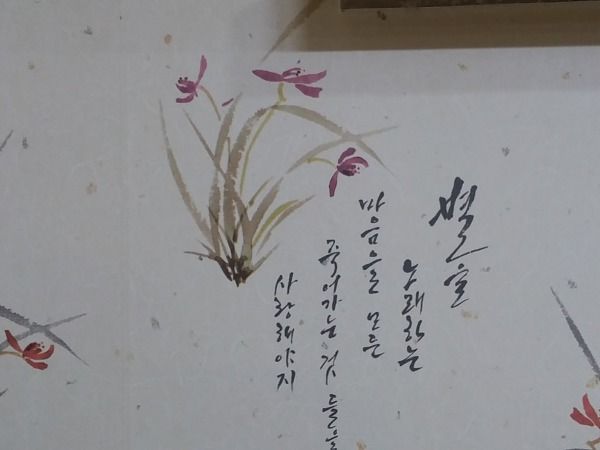 별을
노래하는
마음을 모든
죽어가는 것들을
사랑해야지